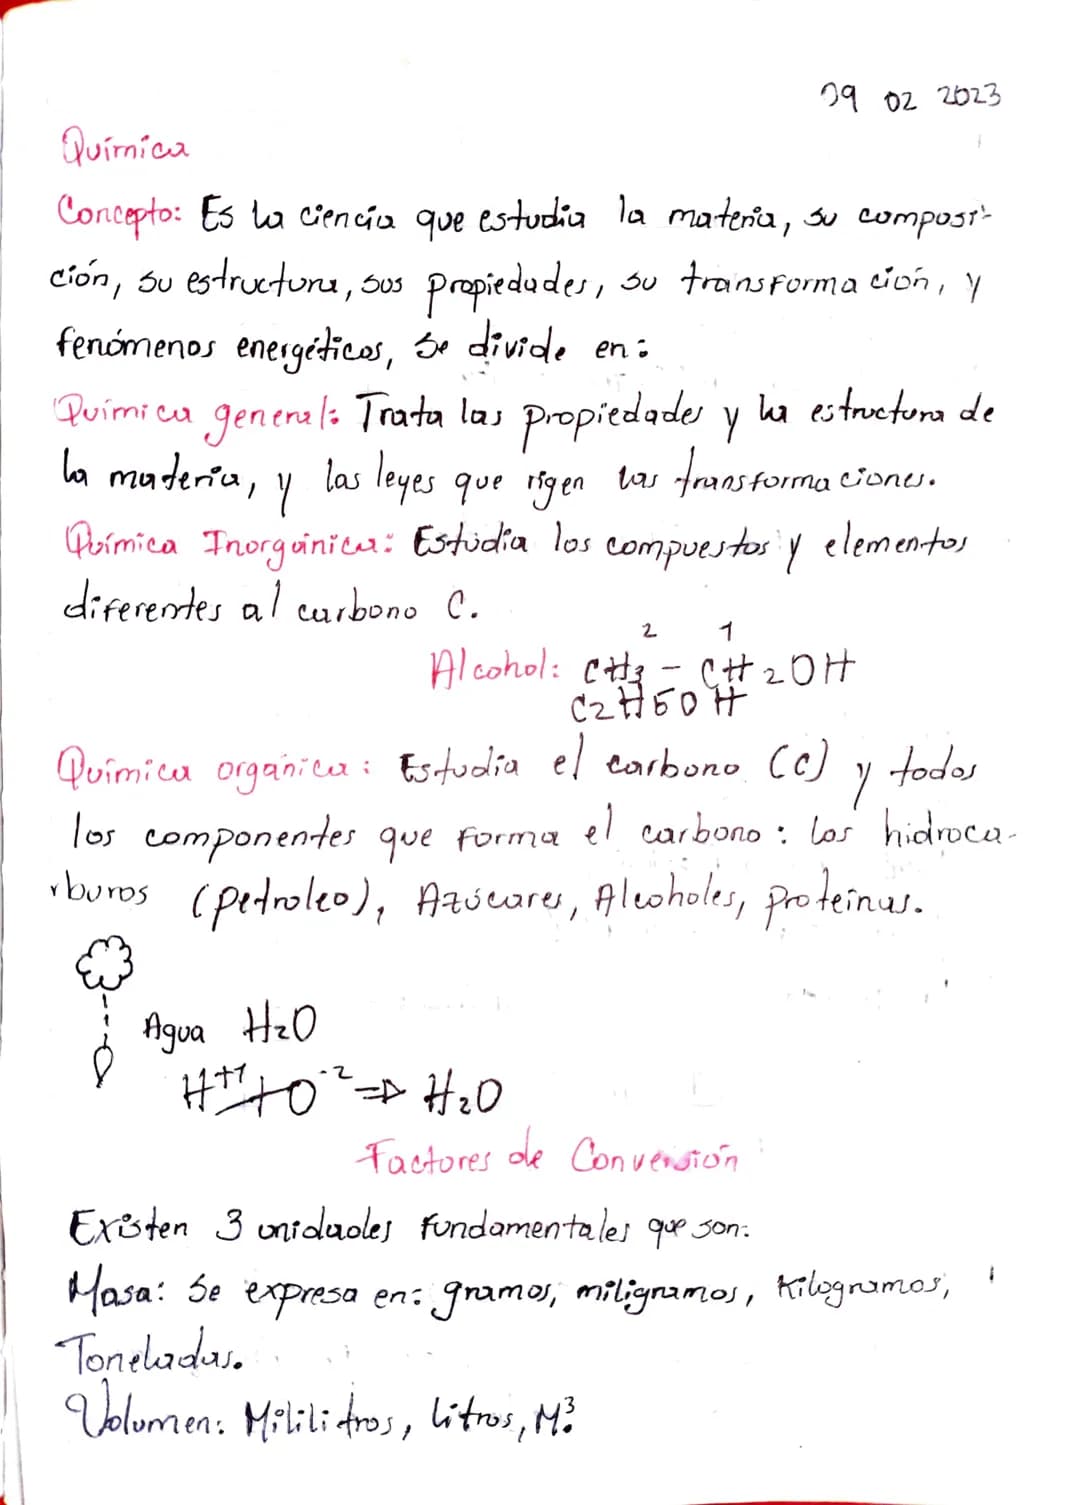 09 02 2023
Química
Concepto: Es la ciencia que estudia la materia, su composi-
ción, su estructura, sus propiedades, su transformación, y
fenómenos energéticos, se divide en:
Química general: Trata las propiedades y la estructura de
la materia, y las leyes que rigen las transformaciones.
Química Inorgánica: Estudia los compuestos y elementos
diferentes al carbono C.
2 1
Alcohol: CH3 - CH2OH
C2H5OH
Química orgánica: Estudia el carbono (C) y todos
los componentes que forma el carbono: los hidroca-
rburos (petroleo), Azúcares, Alcoholes, proteínas.
Agua H2O
H+1 + O-2 => H2O
Factores de Conversión
Existen 3 unidades fundamentales que son:
Masa: Se expresa en: gramos, miligramos, Kilogramos,
Toneladas.
Volumen: Mililitros, litros, M³.